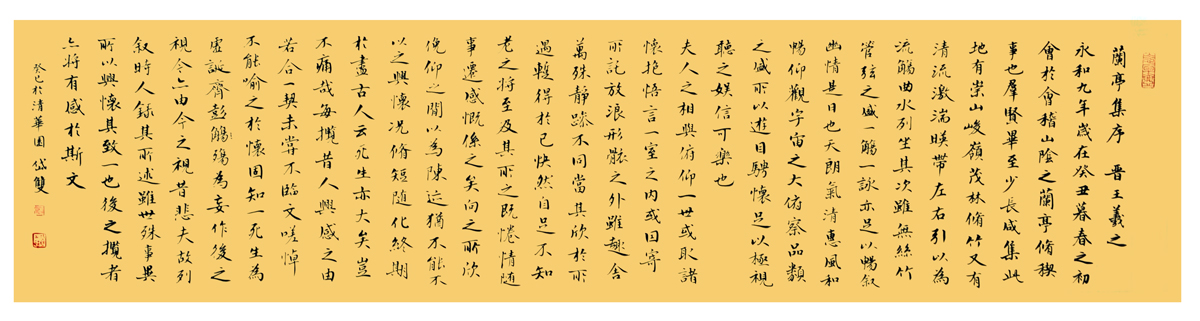 蘭亭集序 晋王羲之
永和九年歲在癸丑暮春之初
會於會稽山陰之蘭亭脩稧
事也羣賢畢至少長咸集此
地有崇山峻嶺茂林脩竹又有
清流激湍暎帶左右引以為
流觴曲水列坐其次雖無絲竹
管弦之盛一觴一詠亦足以暢叙
幽情是日也天朗氣清惠風和
暢仰觀宇宙之大俯察品類
之盛所以遊目騁懷足以極視
聽之娛信可樂也
夫人之相與俯仰一世或取諸
懷抱悟言一室之內或因寄
所託放浪形骸之外雖趣舍
萬殊靜躁不同當其欣於所
遇蹔得於己快然自足不知
老之將至及其所之既惓情隨
事遷感慨係之矣向之所欣
俛仰之閒以為陳迹猶不能不
以之興懷況脩短隨化終期
於盡古人云死生亦大矣豈
不痛哉每攬昔人興感之由
若合一契未嘗不臨文嗟悼
不能喻之於懷固知一死生為
虛誕齊彭殤為妄作後之
視今亦由今之視昔悲夫故列
叙時人錄其所述雖世殊事異
所以興懷其致一也後之攬者
亦將有感於斯文
癸巳於清華園 岱雙